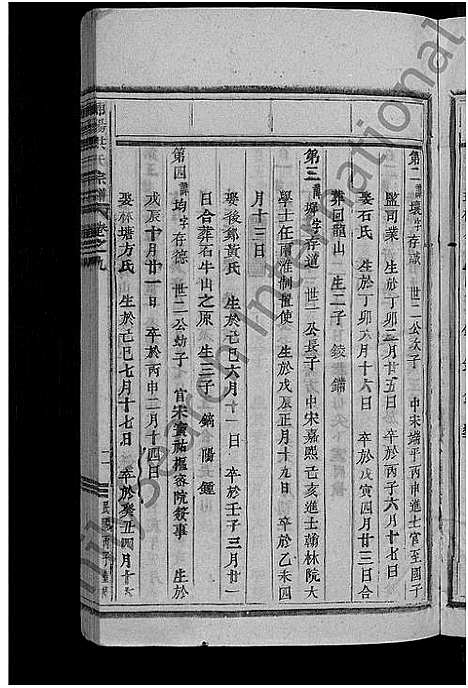 第二諱壎字存誠 世二公次子 中宋端平丙申進士官至國子
監司業 生於丁卯三月廿五日 卒於丙子六月十七日
娶石氏 生於丁卯六月十六日 卒於戊寅四月廿三日合
葬回龍山 生二子 鍐 鏞
第三諱墀字存道 世二公長子 中宋嘉熙己亥進士翰林院大
學士任兩淮制置使 生於戊辰正月十九日 卒於乙未四
月十三日
娶後鄭黃氏 生於己巳六月十一日 卒於壬子三月廿一
日合葬石牛山之原 生三子 鏑 錫 鍾
第四諱均字存德 世二公幼子 官宋寶祐樞密院叙事 生於
戊辰十月廿一日 卒於丙申二月十四日
娶林塘方氏 生於己巳七月十七日 卒於癸丑四月廿六
陽洪氏宗譜 卷之九
民國丙子重修
International